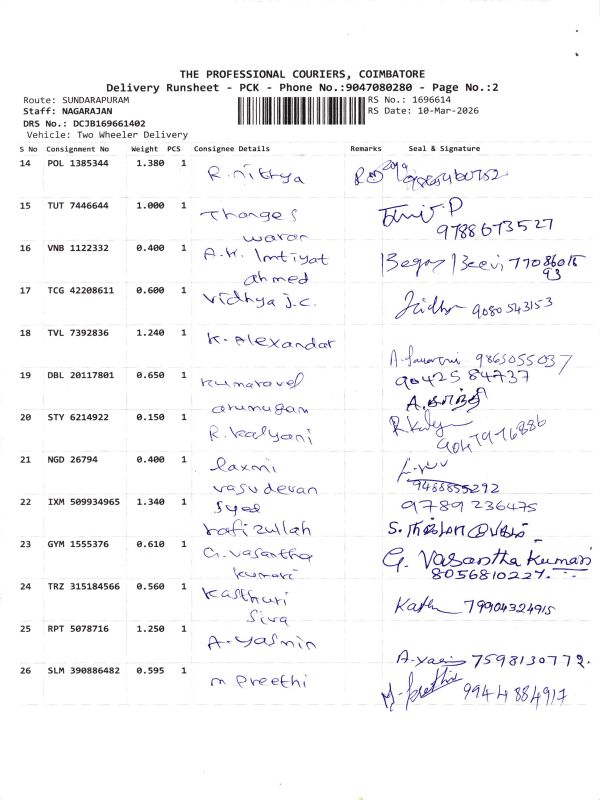 THE PROFESSIONAL COURIERS, COIMBATORE
Delivery Runsheet - PCK - Phone No.:9047080280 - Page No.:2
Route: SUNDARAPURAM
RS No.: 1696614
Staff: NAGARAJAN
RS Date: 10-Mar-2026
DRS No.: DCJB169661402
Vehicle: Two Wheeler Delivery
S No Consignment No Weight PCS Consignee Details Remarks Seal & Signature
14 POL 1385344 1.380 1 R. nithya
15 TUT 7446644 1.000 1 Thanges
waran
9788673527
16 VNB 1122332 0.400 1 A.H. Imtiyat
ahmed
Begas Beevi 77086018
93
17 TCG 42208611 0.600 1 Vidhya j.c.
9080543153
18 TVL 7392836 1.240 1 K. Alexandar
9865055037
19 DBL 20117801 0.650 1 Kumaravel
arumugam
9042584737
20 STY 6214922 0.150 1 R. Kalyani
21 NGD 26794 0.400 1 laxmi
vasudevan
9488855292
22 IXM 509934965 1.340 1 Syed
hafizullah
9789236475
23 GYM 1555376 0.610 1 G. Vasantha
kumari
G. Vasantha Kumari
8056810227.
24 TRZ 315184566 0.560 1 Kasthuri
Siva
79904324915
25 RPT 5078716 1.250 1 A. Yasmin
7598130772.
26 SLM 390886482 0.595 1 m Preethi
M. Preethi 9944884917